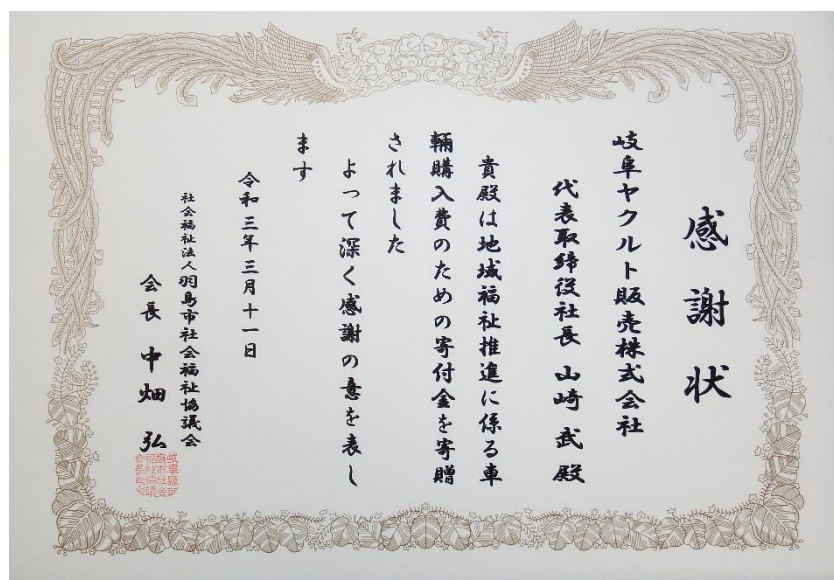 感謝状
岐阜ヤクルト販売株式会社
代表取締役社長 山崎 武 殿
貴殿は地域福祉推進に係る車
輛購入費のための寄付金を寄贈
されました
よって深く感謝の意を表し
ます
令和三年三月十一日
社会福祉法人羽島市社会福祉協議会
会長 中畑 弘